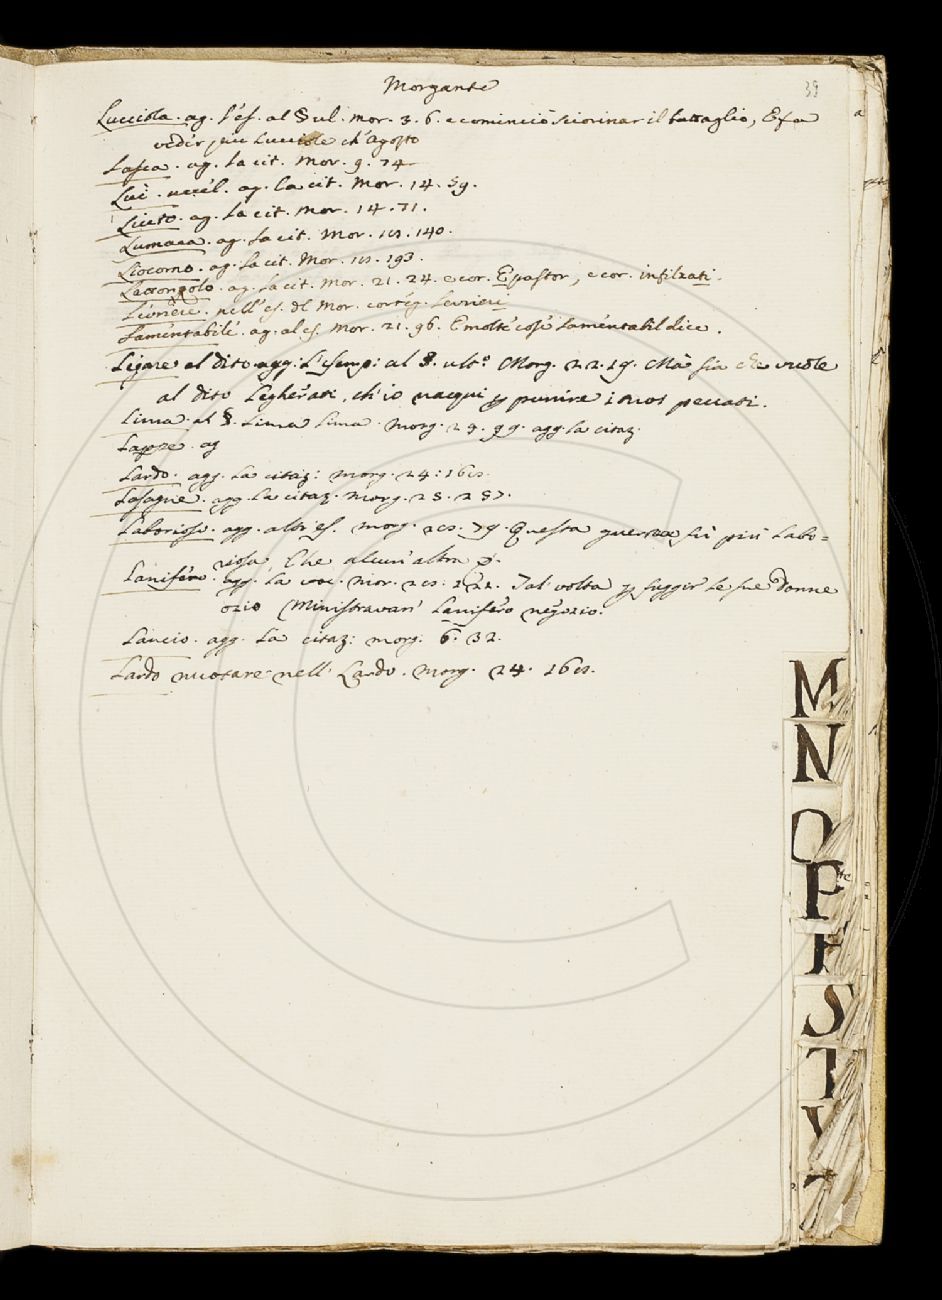 Morgante
39
Lucciola. ag. l'es. al § ul. Mor. 3. 6. e cominciò sciorinar il battaglio, E fa
veder più lucciole ch'agosto
Lasca. ag. la cit. Mor. 9. 74
Luì. uccél. ag. la cit. Mor. 14. 59.
Liuto. ag. la cit. Mor. 14. 71.
Lumaca. ag. la cit. Mor. 18. 140.
Liocorno. ag. la cit. Mor. 18. 193.
ag. la cit. Mor. 21. 24. e cor. E pastor, e cor. infilzati.
Levriere. nell'es. del Mor. corrég. levrieri
Lamentabile. ag. al es. Mor. 21. 96. E molte cose lamentabil dice.
Legare al dito agg. l'esemp: al §. ult.o Morg. 22. 19. Ma sia che vuole
al dito legherati, ch'io nacqui p punire i tuoi peccati.
Lima. al §. Lima lima. Morg. 28. 99. agg. la citaz.
ag
Lardo. agg. la citaz: Morg. 24: 168.
Lasagne. agg. la citaz. Morg. 28. 287.
Laborioso. agg. altri es. Morg. 28. 79. Questa guerra fu più labo=
riosa, Che alcun'altra p.
Lanifero. agg. la voc. Mor. 28. 122. Tal volta p fuggir le sue donne
ozio Ministravan' Lanifero negozio.
Lancio. agg. la citaz: Morg: 6. 32.
Lardo nuotare nell Lardo. Morg. 24. 168.
M
N
O
P
S
T
V